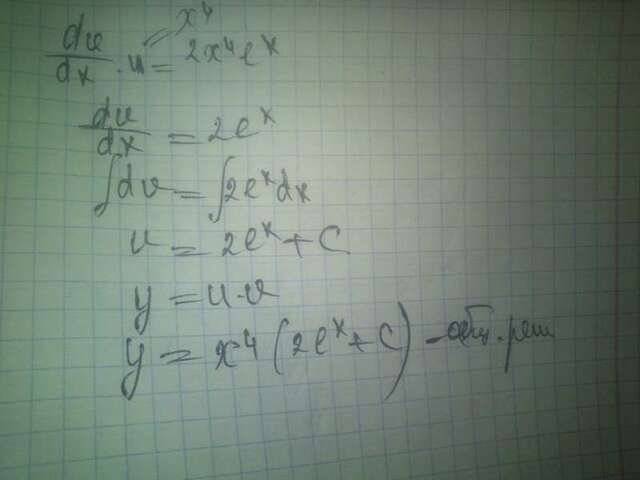 dv/dx · u = 2x⁴eˣ
x⁴
dv/dx = 2eˣ
∫dv = ∫2eˣdx
v = 2eˣ + C
y = u·v
y = x⁴(2eˣ + C) - общ. реш